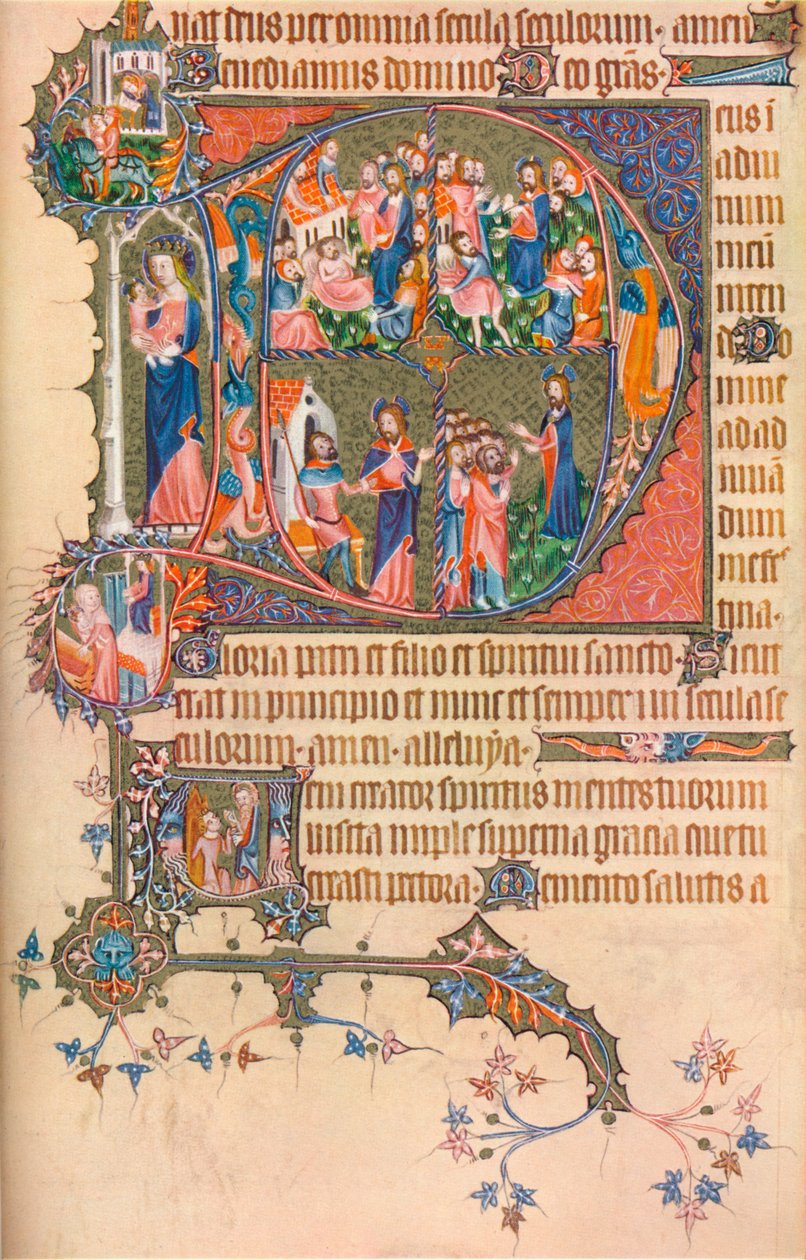 nat deus per omnia secula seculorum · amen
Benedicamus domino Deo grãs ·
Deus ĩ
adiu
meũ
inten
de Do
mine
ad ad
iuuã
dum
me fes
tina ·
Gloria patri et filio et spiritui sancto · Sicut
erat in principio et nunc et semper in secula se
culorum · amen · alleluya ·
Veni creator spiritus mentes tuorum
uisita imple superna gracia que tu
creasti pectora · Memento salutis a